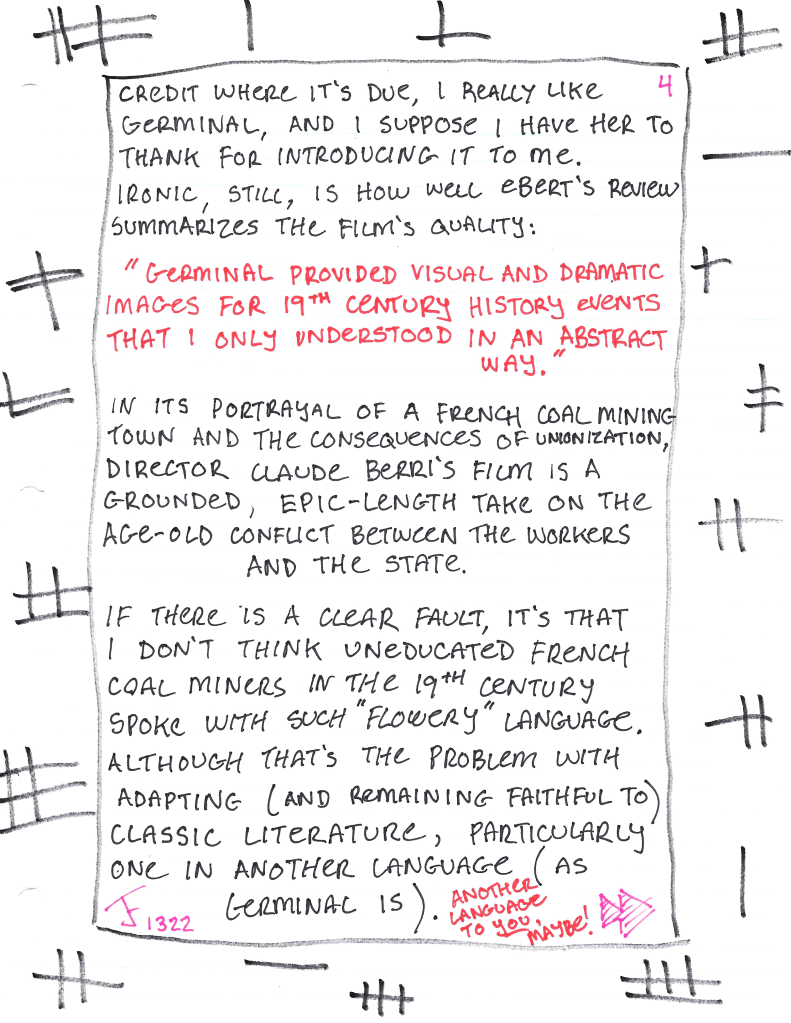 CREDIT WHERE IT'S DUE, I REALLY LIKE 4
GERMINAL, AND I SUPPOSE I HAVE HER TO
THANK FOR INTRODUCING IT TO ME.
IRONIC, STILL, IS HOW WELL EBERT'S REVIEW
SUMMARIZES THE FILM'S QUALITY:
"GERMINAL PROVIDED VISUAL AND DRAMATIC
IMAGES FOR 19TH CENTURY HISTORY EVENTS
THAT I ONLY UNDERSTOOD IN AN ABSTRACT
WAY."
IN ITS PORTRAYAL OF A FRENCH COAL MINING
TOWN AND THE CONSEQUENCES OF UNIONIZATION,
DIRECTOR CLAUDE BERRI'S FILM IS A
GROUNDED, EPIC-LENGTH TAKE ON THE
AGE-OLD CONFLICT BETWEEN THE WORKERS
AND THE STATE.
IF THERE IS A CLEAR FAULT, IT'S THAT
I DON'T THINK UNEDUCATED FRENCH
COAL MINERS IN THE 19TH CENTURY
SPOKE WITH SUCH "FLOWERY" LANGUAGE.
ALTHOUGH THAT'S THE PROBLEM WITH
ADAPTING (AND REMAINING FAITHFUL TO)
CLASSIC LITERATURE, PARTICULARLY
ONE IN ANOTHER LANGUAGE (AS
GERMINAL IS).
ANOTHER
LANGUAGE
TO YOU,
MAYBE!
1322